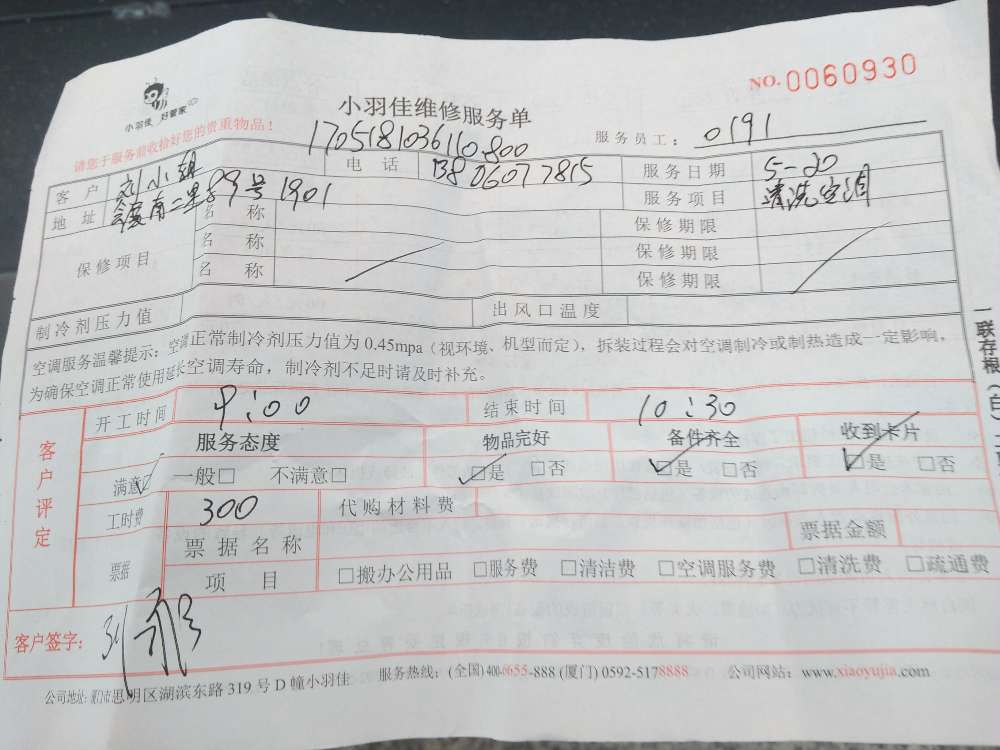 小羽佳 好管家
NO.0060930
小羽佳维修服务单
请您于服务前收拾好您的贵重物品！
1705181036110800
服务员工： 0191
客户 刘小姐 电话 13806077815 服务日期 5-20
地址 南二里59号1901 服务项目 清洗空调
保修项目 名称 保修期限
名称 保修期限
名称 保修期限
制冷剂压力值 出风口温度
空调服务温馨提示：空调正常制冷剂压力值为 0.45mpa（视环境、机型而定），拆装过程会对空调制冷或制热造成一定影响，
为确保空调正常使用延长空调寿命，制冷剂不足时请及时补充。
一联存根（白）二
客户评定
开工时间 9:00 结束时间 10:30
服务态度 物品完好 备件齐全 收到卡片
满意☑ 一般□ 不满意□ ☑是 □否 ☑是 □否 ☑是 □否
工时费 300 代购材料费
票据 票据名称 票据金额
项目 □搬办公用品 □服务费 □清洁费 □空调服务费 □清洗费 □疏通费
客户签字： 刘
公司地址: 厦门市思明区湖滨东路 319 号 D 幢小羽佳 服务热线: (全国)400-6655-888 (厦门) 0592-5178888 公司网站: www.xiaoyujia.com